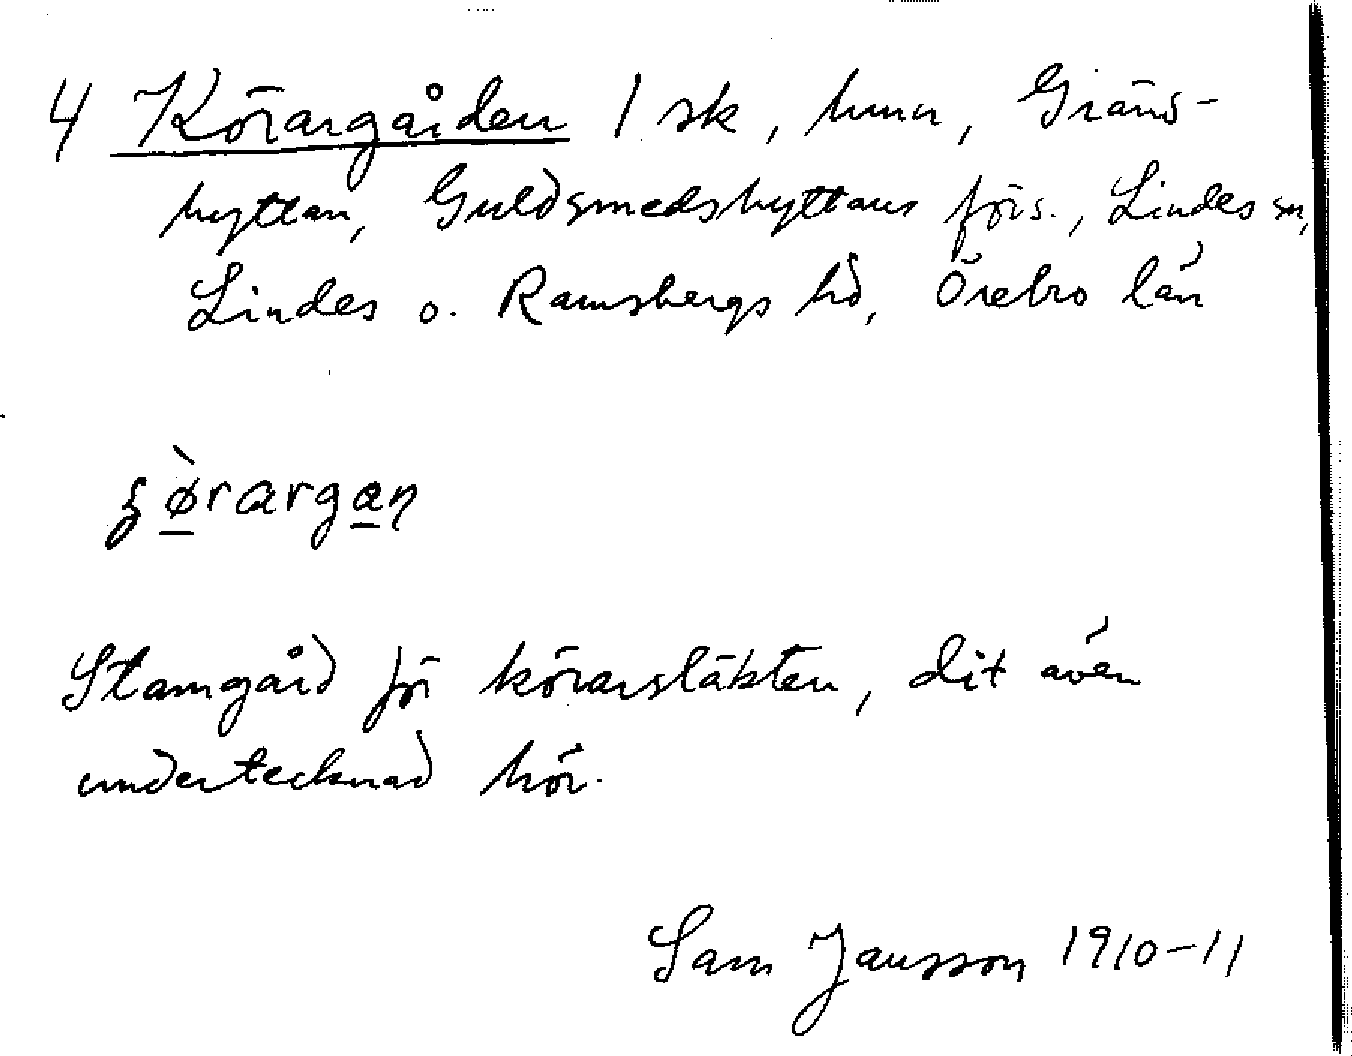 4 Körargården 1 sk, hmn, Gräns-
hyttan, Guldsmedshyttans förs., Lindes sn,
Lindes o. Ramsbergs hd, Örebro län
Stamgård för körarsläkten, dit även
undertecknad hör.
Sam Jansson 1910-11